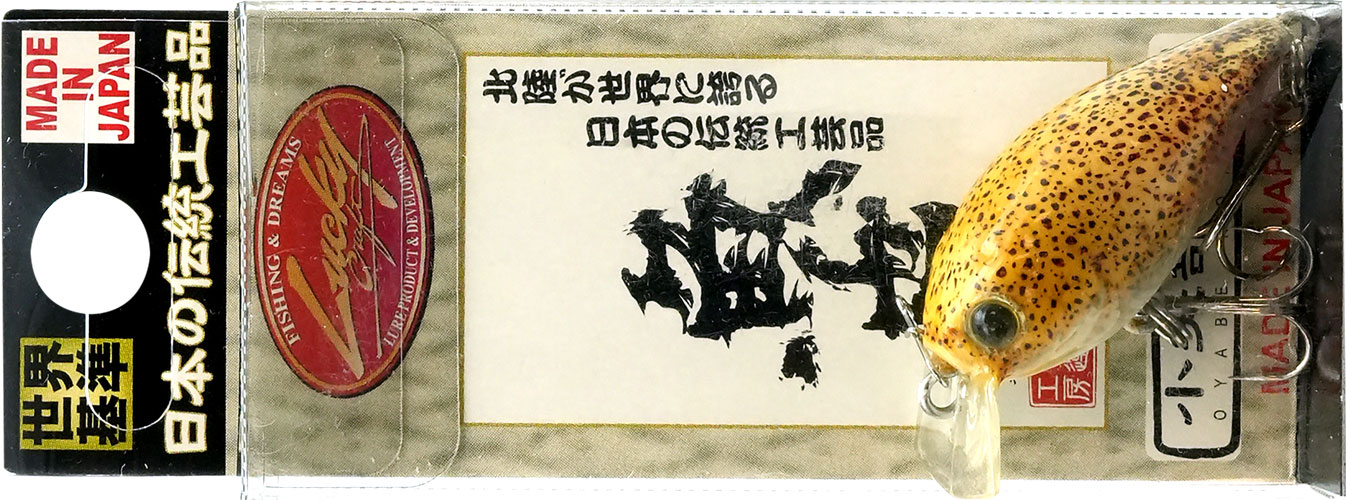 MADE
IN
JAPAN
世界
基準
日本の伝統工芸品
FISHING & DREAMS
Lucky
Craft
LURE PRODUCT & DEVELOPMENT
北陸が世界に誇る
日本の伝統工芸品
工房
小
OYABE
MADE IN JAPAN